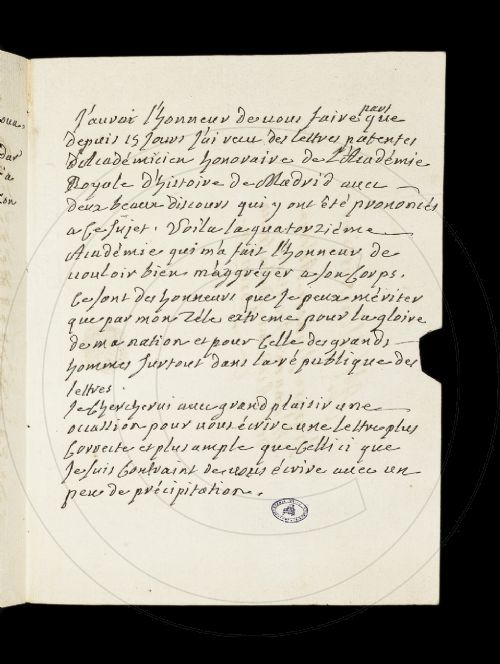 oua,
dar
a
con
J'auroi l'honneur de vous faire part que
depuis 15 Jours J'ai reçu des lettres patentes
d'Académicien honoraire de l'Académie
Royale d'histoire de Madrid avec
deux beaux discours qui y ont été prononcés
a ce sujet. Voila la quatorziéme
Académie qui m'a fait l'honneur de
vouloir bien m'aggréger a son Corps.
Ce sont des honneurs que Je peux mériter
que par mon Zéle extreme pour la gloire
de ma nation et pour Celle des grands
hommes surtout dans la république des
lettres.
Je Chercherai avec grand plaisir une
occassion pour vous écrire une lettre plus
Correcte et plus ample que Celle ici que
Je suis Contraint de vous écrire avec un
peu de précipitation.